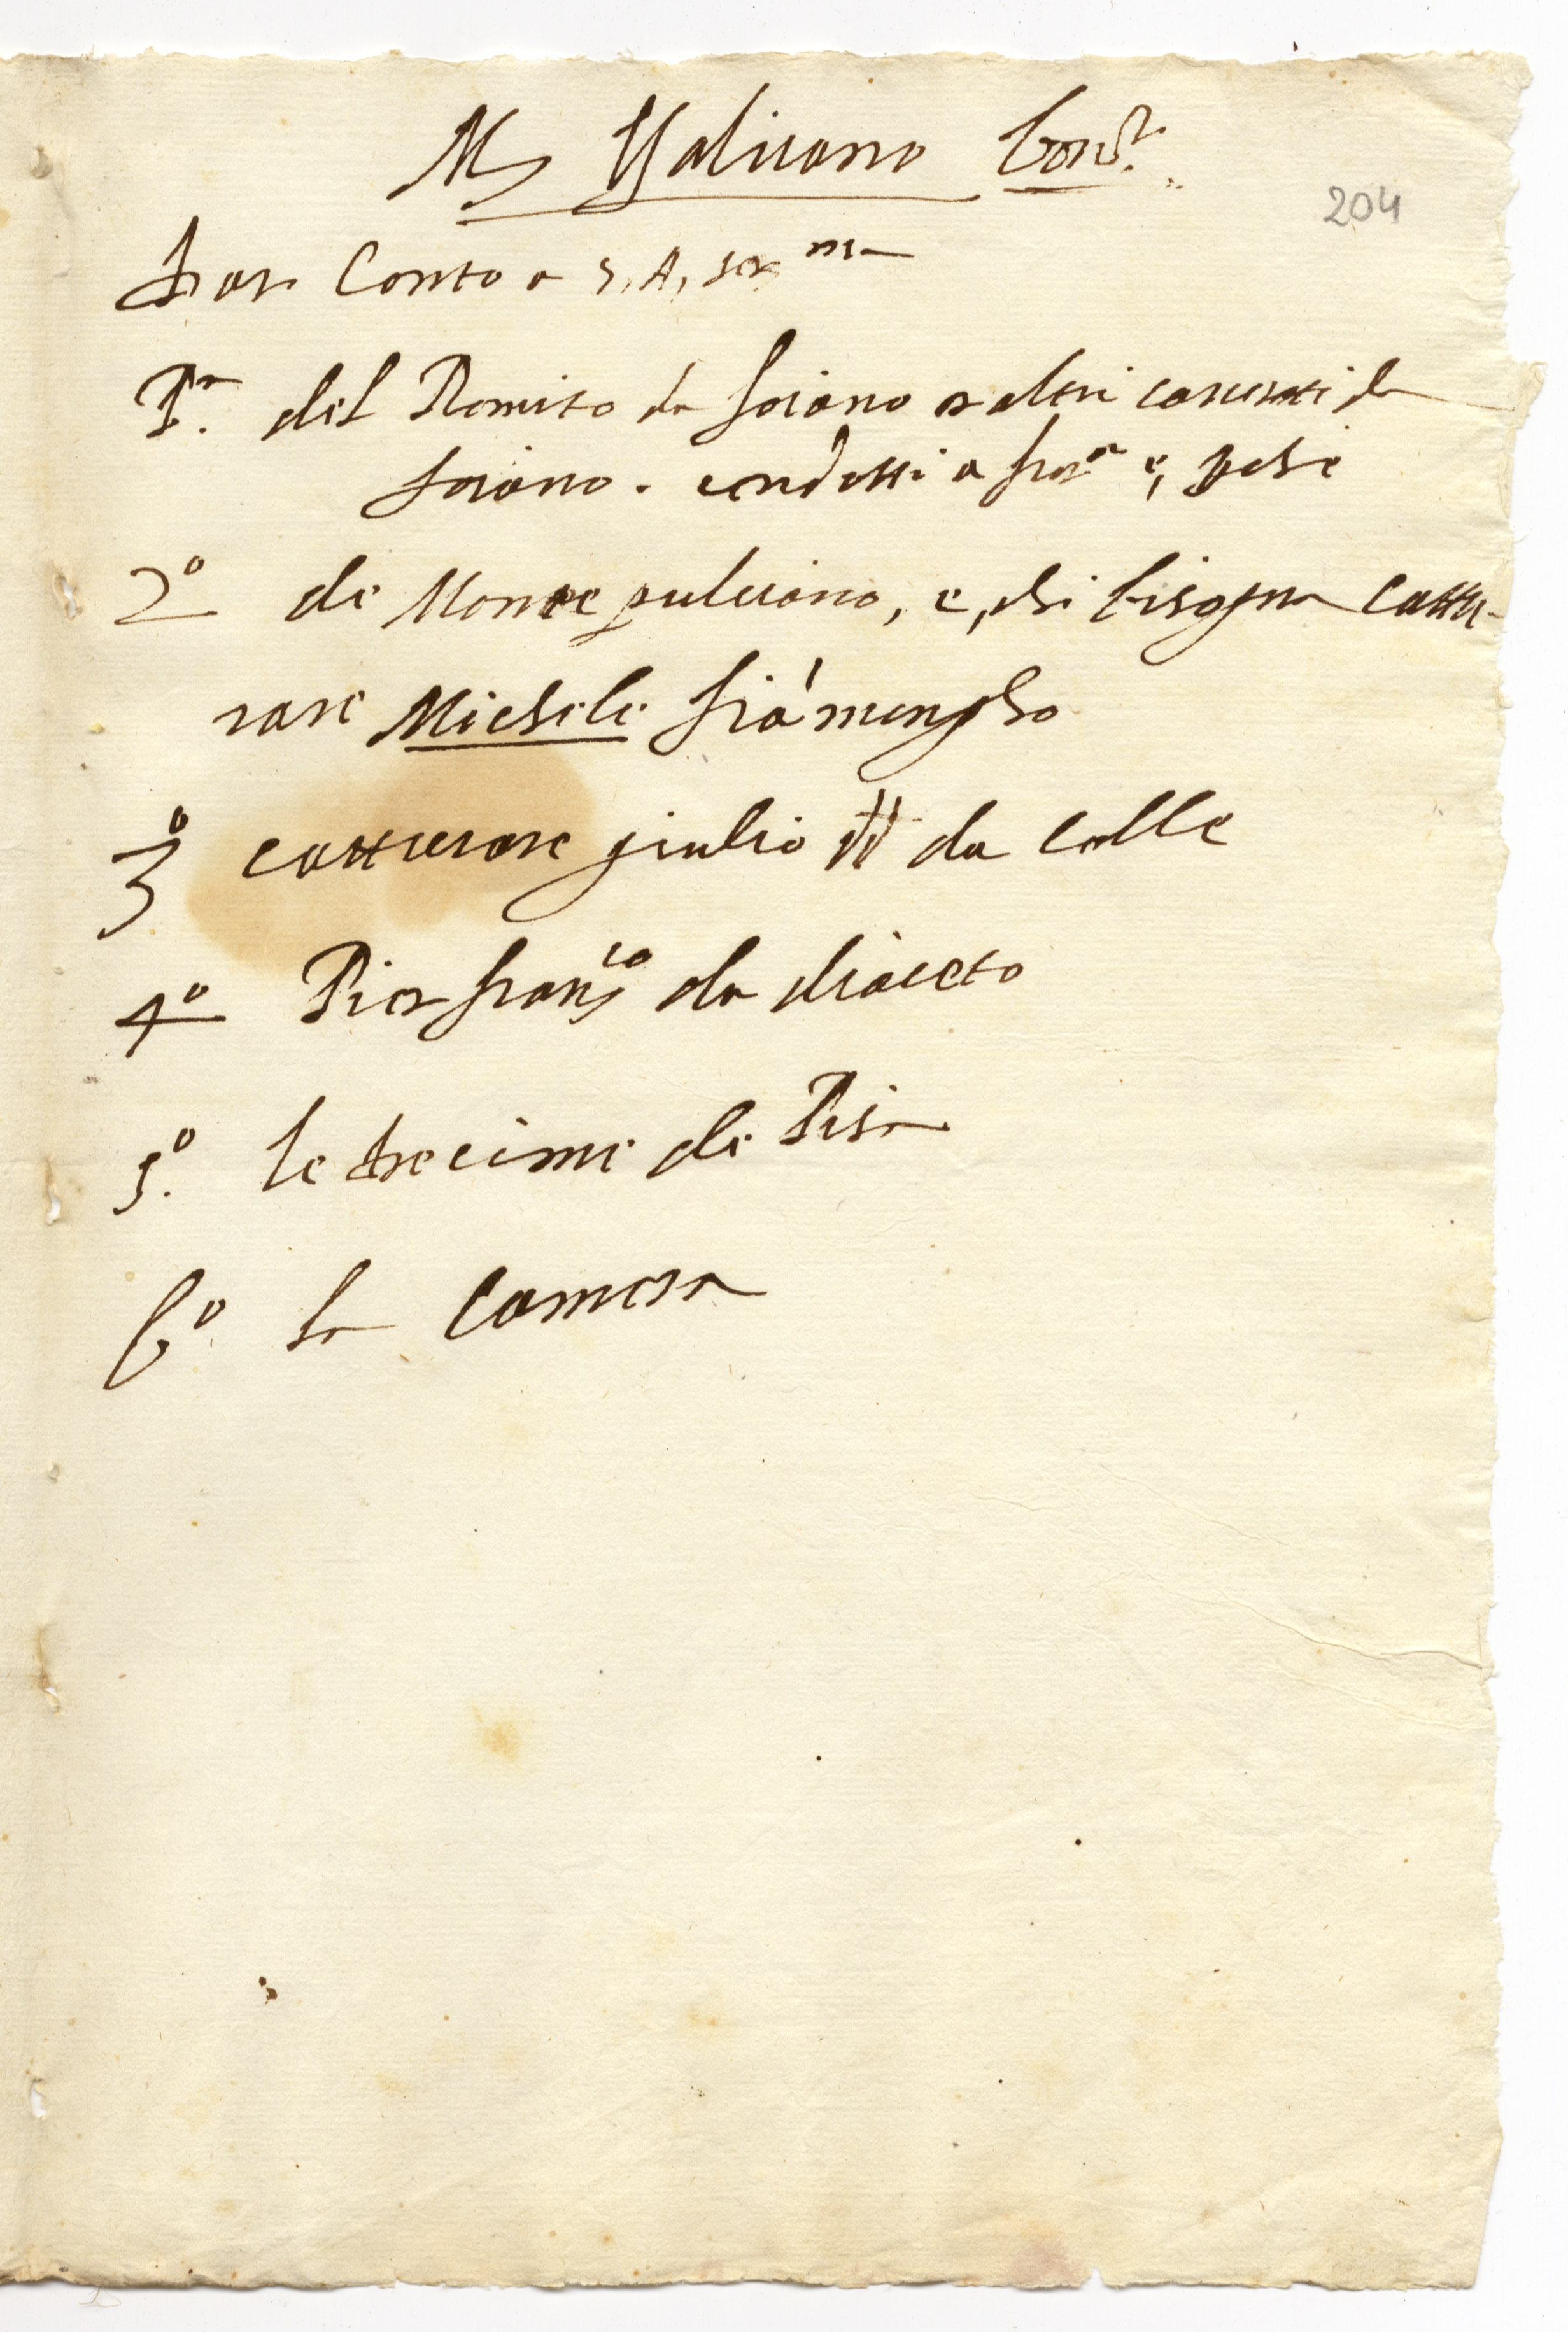 M. Galicano Cons.re
204
dar Conto a S, A, ser ma
P.a del Romito da soiano e altri carcerati da
soiano. condotti a fior.a e, pesi
2o de Montepulciano, e, chi bisogna cattu-
rare Michele fiàmengho
3o catturare giulio da colle
4o Pier franco da diaceto
5o. le decime de Pisa
6o la Camera